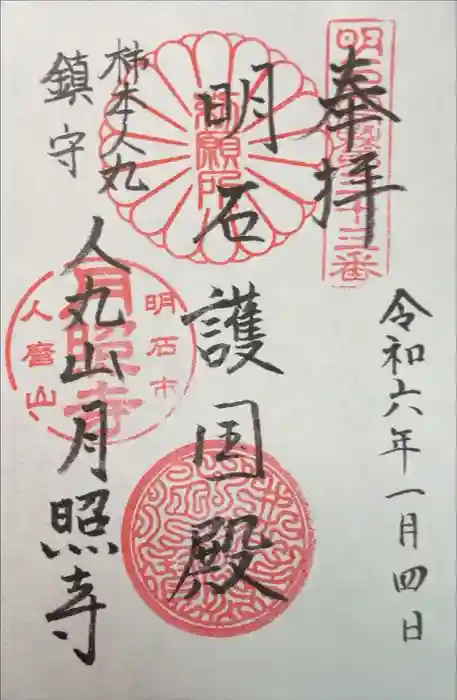 奉拝
令和六年一月四日
明石護国殿
柿本人丸
鎮守
人丸山月照寺
御願所
月照寺
明石市
人麿山